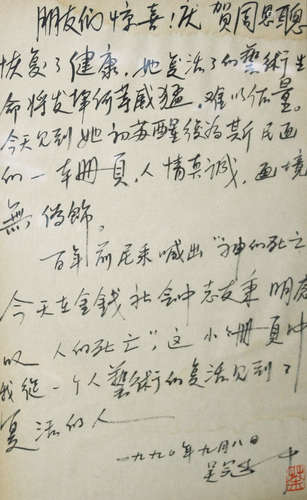 朋友们惊喜!庆贺周思聪
恢复了健康,她复活了的艺術生
命将发挥何等威猛,难以估量。
今天见到她初苏醒後為斯民画
的一本冊頁,人情真诚,画境
無偽飾。
百年前尼采喊出“神的死亡
今天在金錢社会中志友秉明虐
叹 人的死亡”,这小小冊頁中
我從一个人藝術的复活见到了
复活的人
一九九〇年九月八日
吴冠中